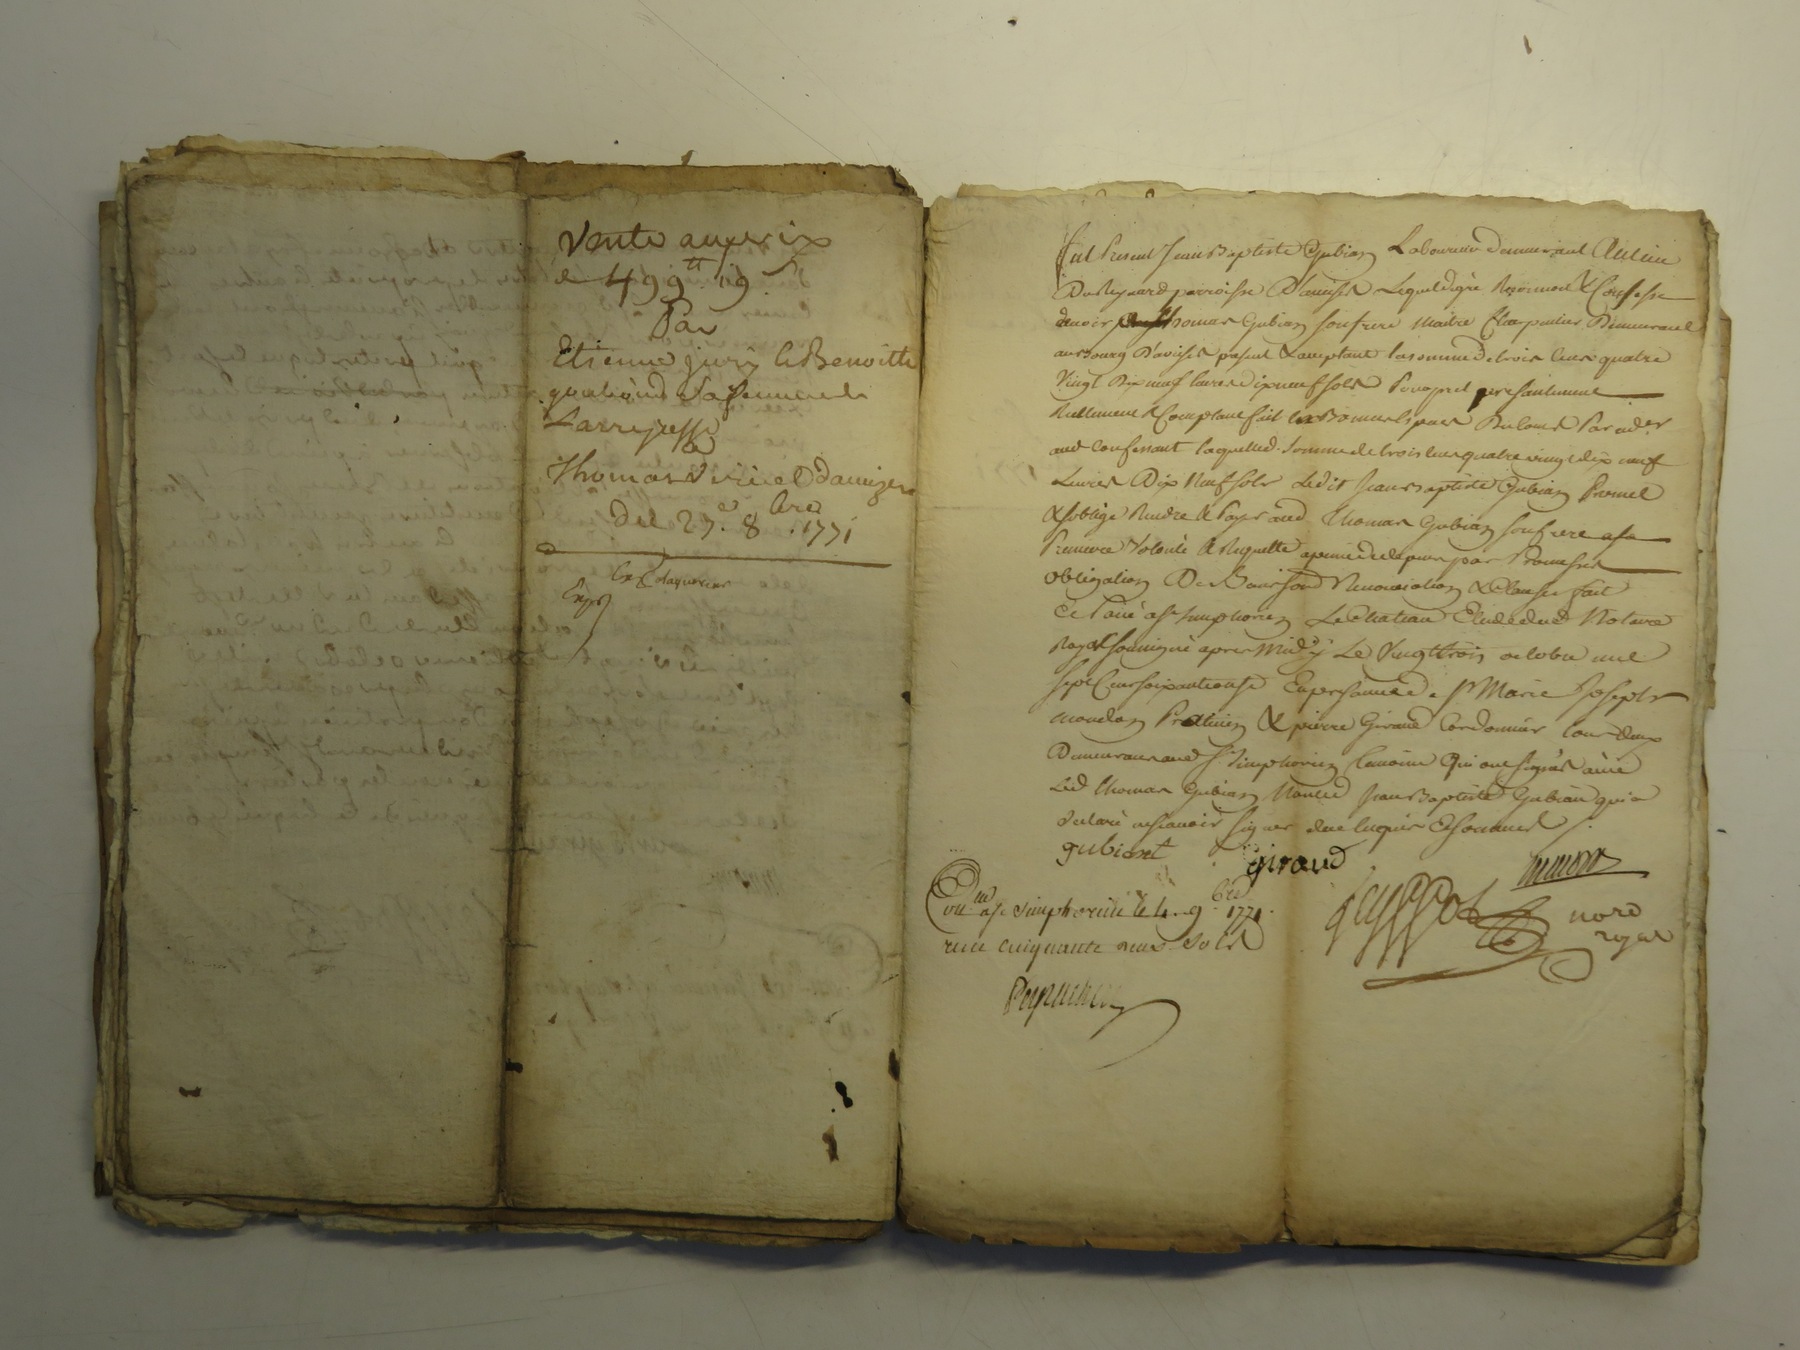 Vente au prix
de 499tt 19s
Par
Etienne jury & Benoitte
goutiond sa femme de
Larrejasse
a
Thomas Viriel d'aveizes
Del 27e 8bre 1771
Exp
fut Present Jean Baptiste Gubian Laboureur demeurant Au lieu
Du parroisse D'aveises Lequel de gré Reconnoit & Confesse
devoir Thomas Gubian son frere Maitre Charpentier Demeurant
au Bourg D'aveises présent & acceptant la somme de trois Cens quatre
Vingt Dix neuf livres dix neuf sols Pour pret presentement
Reellement & Comptant fait en Bonnes Especes Du Cours
confessant laquelled. Somme de trois Cens quatre vingt dix neuf
Livres Dix Neuf sols Ledit Jean Baptiste Gubian Promet
& s'oblige Rendre & Payer aud. Thomas Gubian son frere a sa
Premiere Volonté & Requette a peine de depens par Promesses
Obligation De Biens soumd Renonciation & Clauses fait
& Passé a St simphorien Le Chateau Etude dud Notaire
Royal soussigné apres Midy Le Vingt trois octobre mil
sept Cens soixante onze En presence de Sr Marie Joseph
Praticien & pierre Giraud Cordonnier tous deux
Demeurans aud St simphorien temoins Qui ont signés avec
Led Thomas Gubian Non led Jean Baptiste Gubian qui a
declaré ne scavoir signer de ce Enquis & sommés
gubiant
giraud
Con.lle a St simphorien le 4. 9bre 1771.
receu cinquante neuf sols
nore
royal